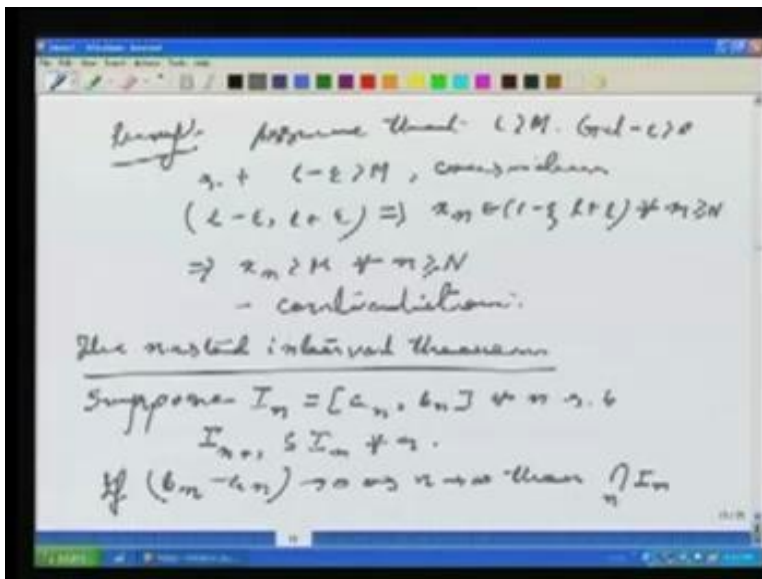 Proof. Assume that l > M. Get ε > 0
s.t l-ε > M, consider
(l-ε, l+ε) ⇒ x_n ∈ (l-ε, l+ε) ∀ n ≥ N
⇒ x_n > M ∀ n ≥ N
- contradiction.
The nested interval theorem
Suppose I_n = [a_n, b_n] ∀ n s.t
I_{n+1} ⊆ I_n ∀ n.
If (b_n - a_n) → 0 as n → ∞ then ⋂_n I_n